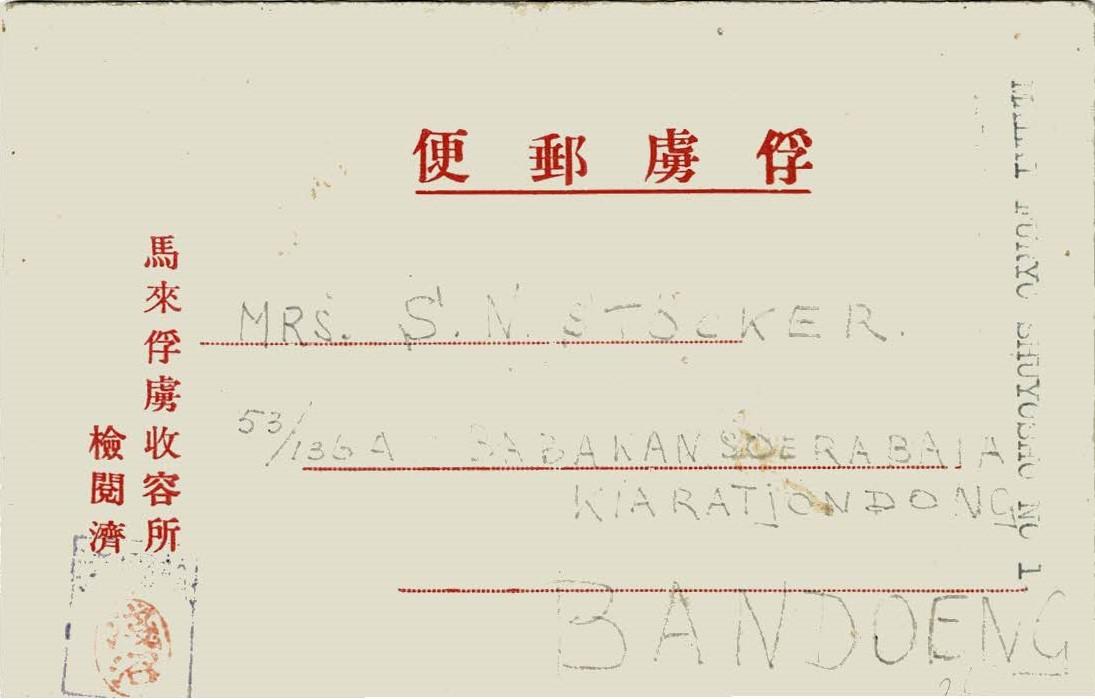 俘虜郵便
MRS. S. N. STÖCKER.
53/136A BABAKAN SOERABAIA
KIARATJONDONG
BANDOENG
馬來俘虜收容所
檢閱濟
MALAI FURYO SHUYOSHO NO 1